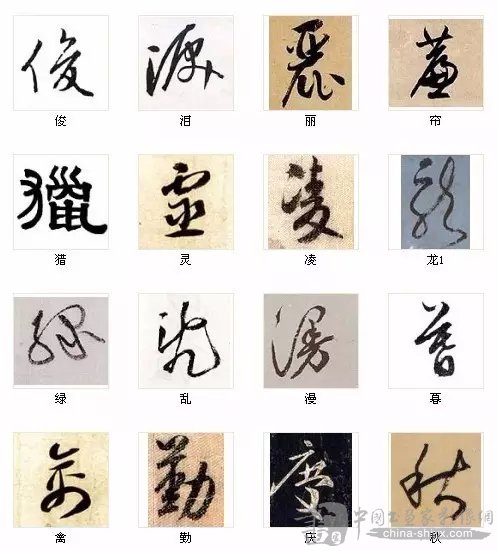 俊 泪 丽 帘
猎 灵 凌 龙1
绿 乱 漫 暮
禽 勤 庆 秋
www.china-shjx.com